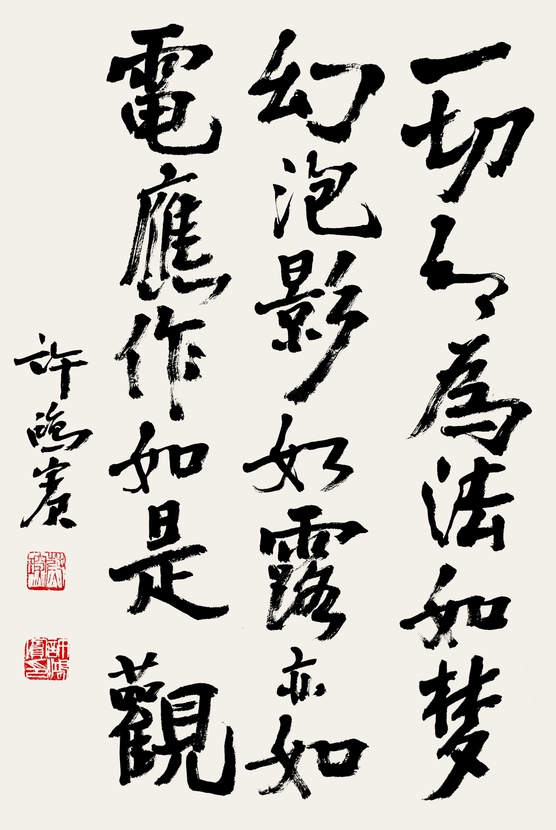 一切有為法如梦
幻泡影如露亦如
電應作如是觀
許鴻賓